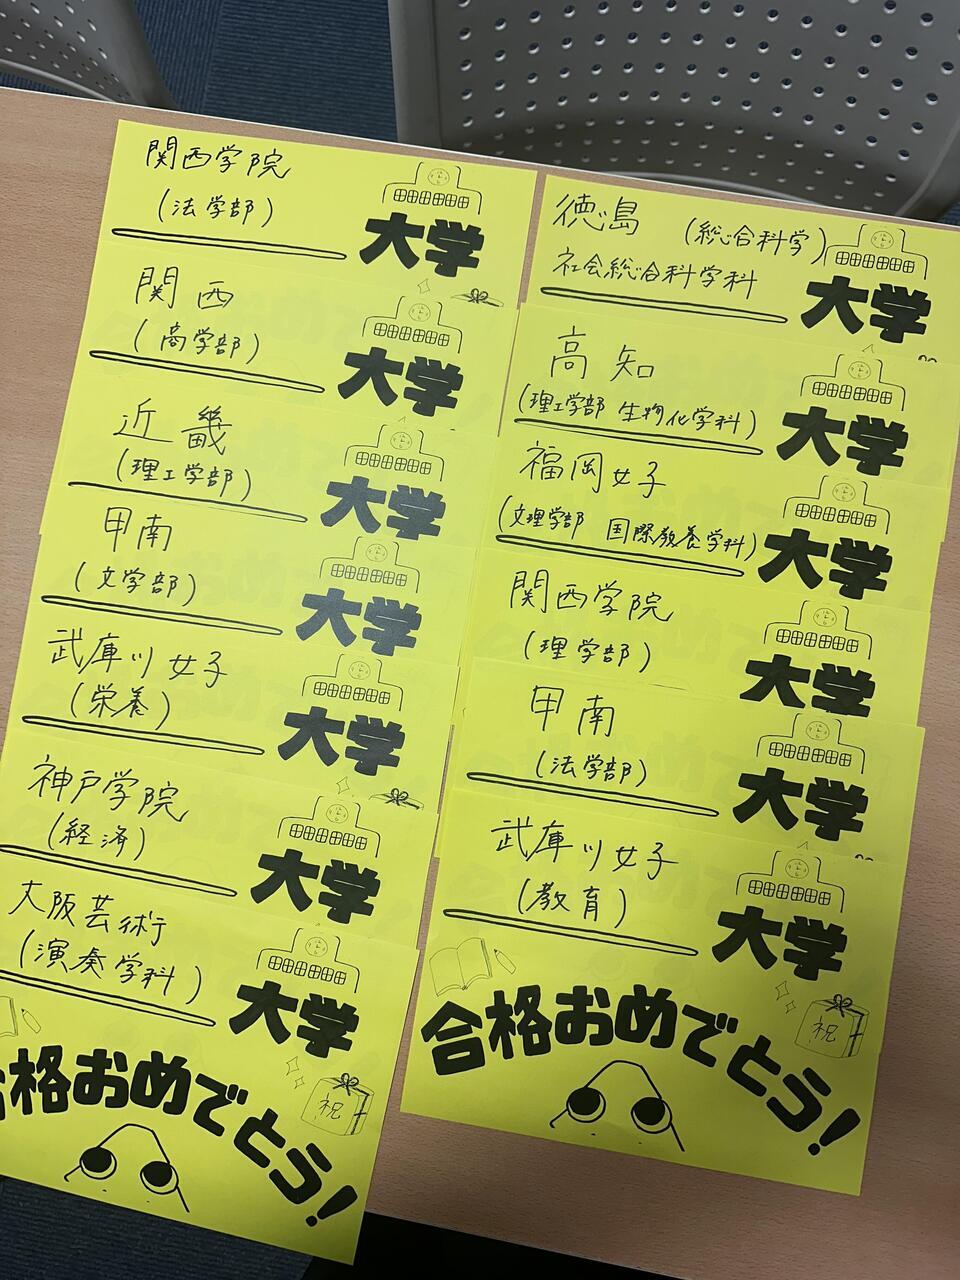 関西学院
(法学部)
大学
関西
(商学部)
大学
近畿
(理工学部)
大学
甲南
(文学部)
大学
武庫川女子
(栄養)
大学
神戸学院
(経済)
大学
大阪芸術
(演奏学科)
大学
合格おめでとう!
祝
徳島 (総合科学)
社会総合科学科
大学
高知
(理工学部 生物化学科)
大学
福岡女子
(文理学部 国際教養学科)
大学
関西学院
(理学部)
大学
甲南
(法学部)
大学
武庫川女子
(教育)
大学
合格おめでとう!
祝